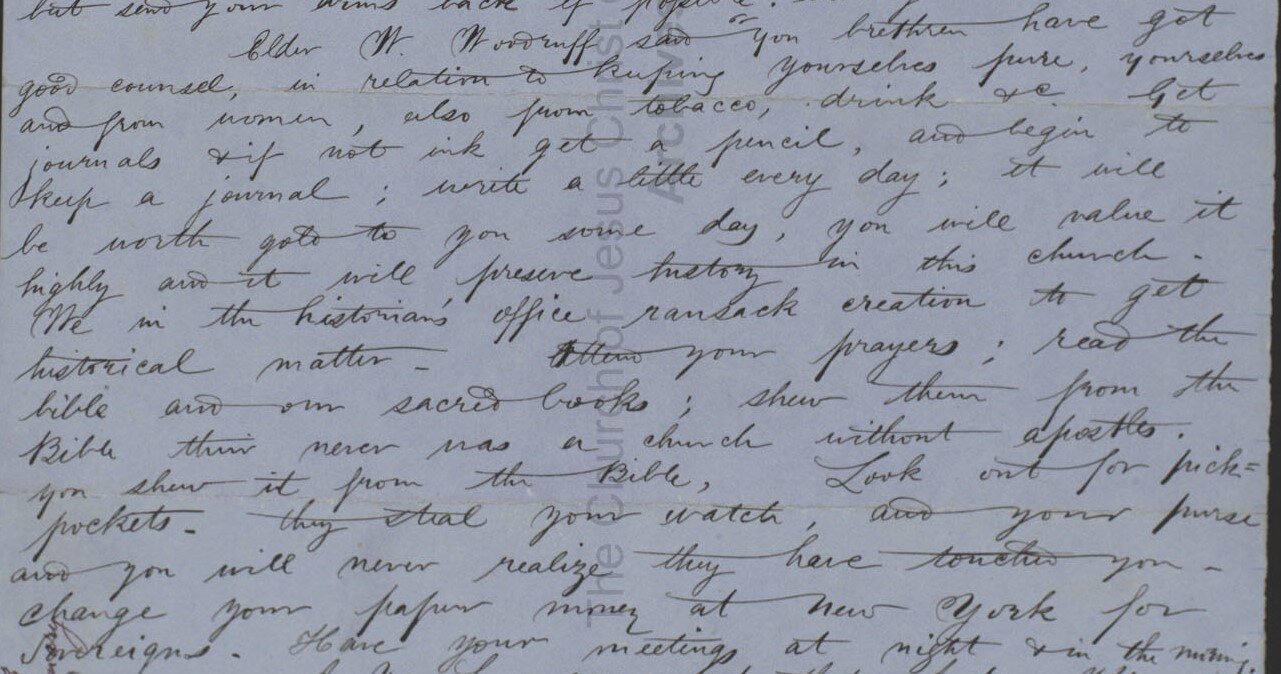 but send your arms back if possible.
Elder W. Woodruff said you brethren have got
good counsel, in relation to keeping yourselves pure, yourselves
and from women, also from tobacco, drink &c. Get
journals & if not ink get a pencil, and begin to
keep a journal; write a little every day; it will
be worth gold to you some day, you will value it
highly and it will preserve history in this church.
We in the historian's office ransack creation to get
historical matter - Attend your prayers; read the
bible and our sacred books; shew them from the
Bible their never was a church without apostles.
you shew it from the Bible, Look out for pick=
pockets - they steal your watch, and your purse
and you will never realize they have touched you -
change your paper money at New York for
Sovereigns. Have your meetings at night & in the morning.
The Church of Jesus Christ
Archives